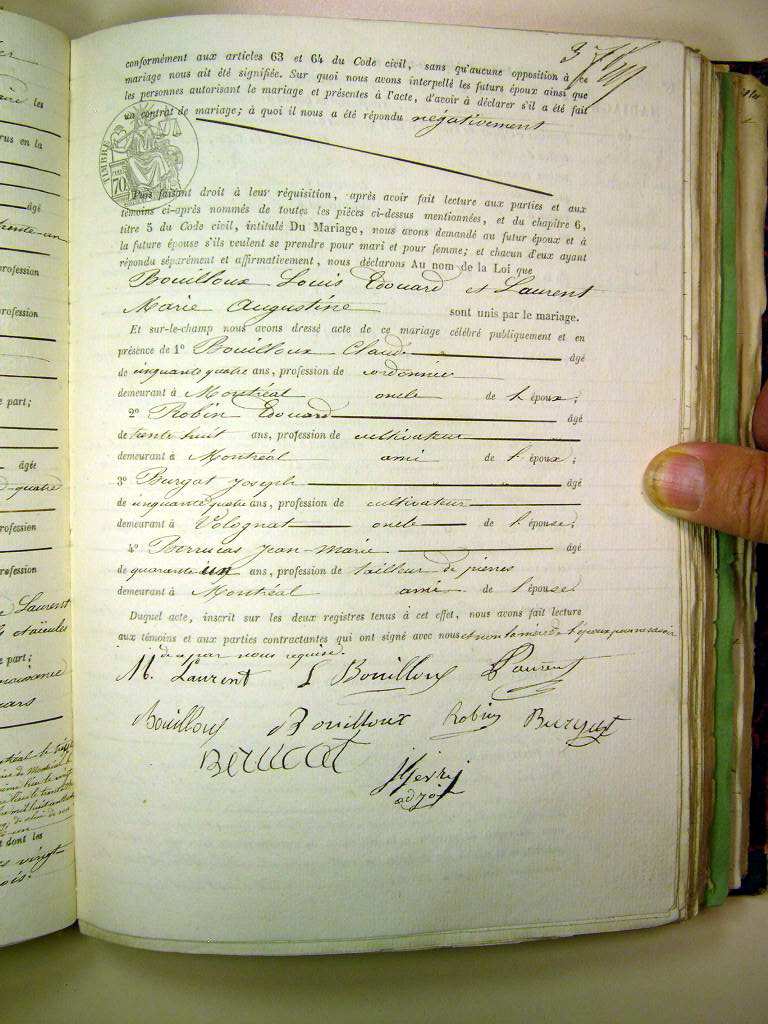 conformément aux articles 63 et 64 du Code civil, sans qu'aucune opposition à ce
mariage nous ait été signifiée. Sur quoi nous avons interpellé les futurs époux ainsi que
les personnes autorisant le mariage et présentes à l'acte, d'avoir à déclarer s'il a été fait
un contrat de mariage; à quoi il nous a été répondu négativement
TIMBRE
70
Puis faisant droit à leur réquisition, après avoir fait lecture aux parties et aux
témoins ci-après nommés de toutes les pièces ci-dessus mentionnées, et du chapitre 6,
titre 5 du Code civil, intitulé Du Mariage, nous avons demandé au futur époux et à
la future épouse s'ils veulent se prendre pour mari et pour femme; et chacun d'eux ayant
répondu séparément et affirmativement, nous déclarons Au nom de la Loi que
Bouilloux Louis Edouard et Laurent
Marie Augustine sont unis par le mariage.
Et sur-le-champ nous avons dressé acte de ce mariage célébré publiquement et en
présence de 1° Bouilloux Claude âgé
de cinquante quatre ans, profession de cordonnier
demeurant à Montréal oncle de l'époux;
2° Robin Edouard âgé
de trente huit ans, profession de cultivateur
demeurant à Montréal ami de l'époux;
3° Burgat Joseph âgé
de cinquante quatre ans, profession de cultivateur
demeurant à Volognat oncle de l'épouse;
4° Berrucas Jean-Marie âgé
de quarante un ans, profession de tailleur de pierres
demeurant à Montréal ami de l'épouse
Duquel acte, inscrit sur les deux registres tenus à cet effet, nous avons fait lecture
aux témoins et aux parties contractantes qui ont signé avec nous et non la mère de l'époux pour ne savoir
de ce par nous requise.
M. Laurent L Bouilloux Laurent
Bouilloux Bouilloux Robin Burgat
Berucat
adjoi